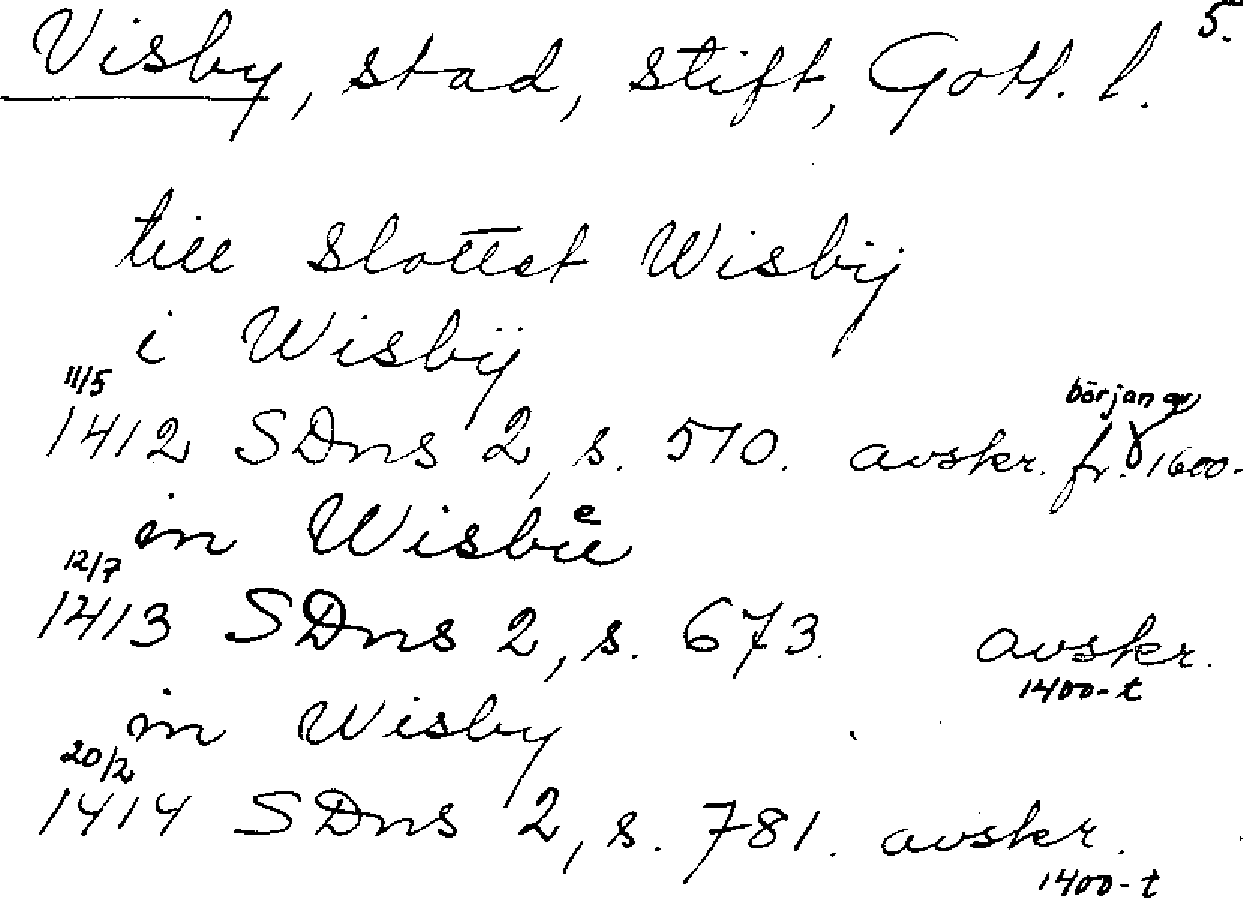 Visby, stad, stift, Gotl. l. 5.
till Slottet Wisbÿ
i Wisbÿ
11/5
1412 SDns 2, s. 510. avskr. fr. början av 1600-
in Wisbuͤ
12/7
1413 SDns 2, s. 673. avskr.
1400-t
in Wisby
20/2
1414 SDns 2, s. 781. avskr.
1400-t